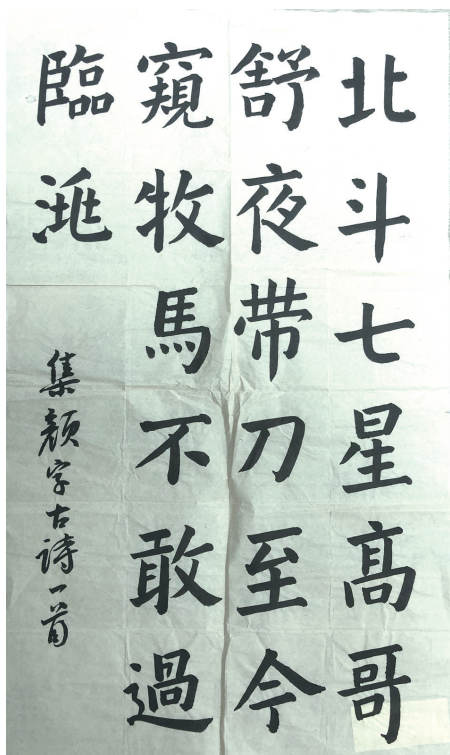 北斗七星髙哥
舒夜带刀至今
窺牧馬不敢過
臨洮
集颜字古詩一首